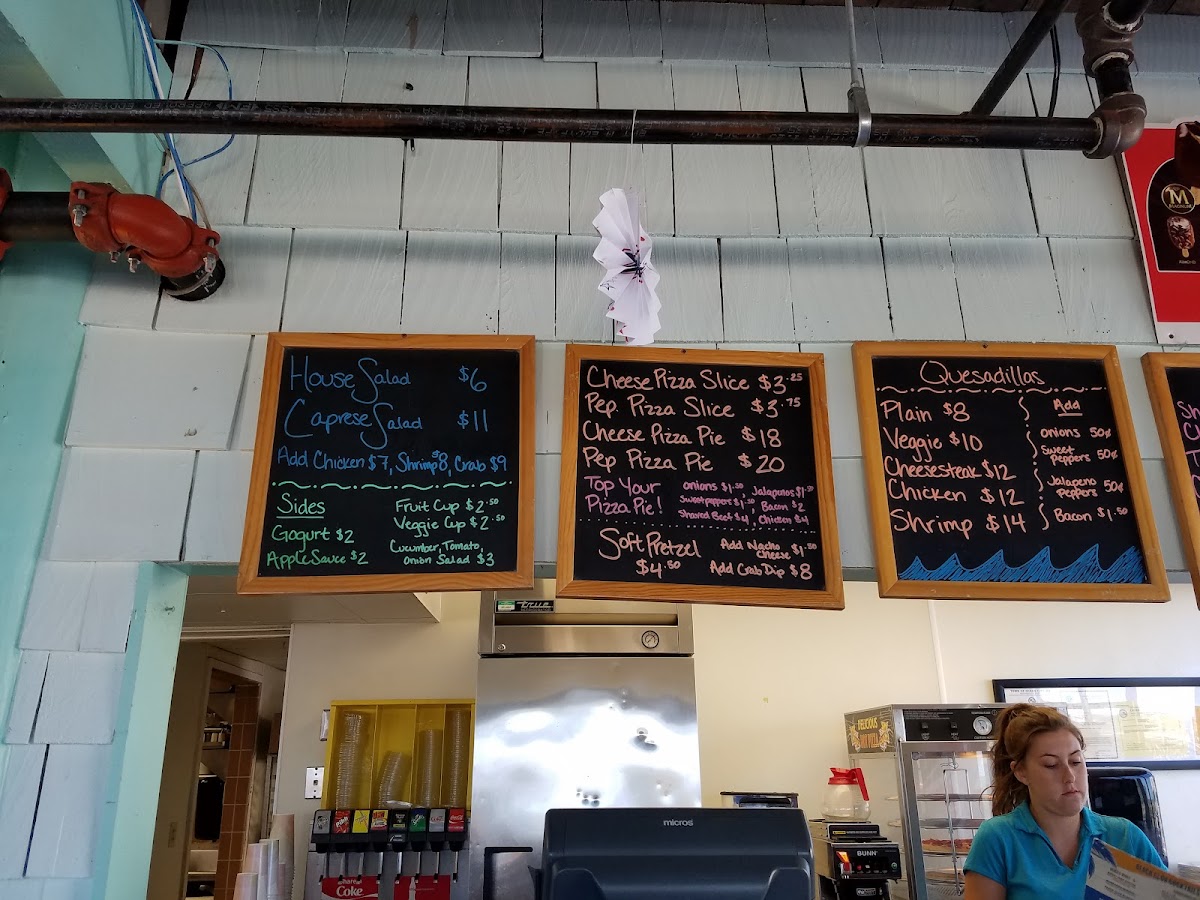 House Salad $6
Caprese Salad $11
Add Chicken $7, Shrimp $8, Crab $9
Sides
Gogurt $2
Apple Sauce $2
Fruit Cup $2.50
Veggie Cup $2.50
Cucumber, Tomato,
Onion Salad $3
Cheese Pizza Slice $3.25
Pep. Pizza Slice $3.75
Cheese Pizza Pie $18
Pep Pizza Pie $20
Top Your
Pizza Pie!
Onions $1.50, Jalapenos $1.50
Sweet peppers $1.50, Bacon $2
Shaved Beef $4, Chicken $4
Soft Pretzel
$4.50
Add Nacho
Cheese $1.50
Add Crab Dip $8
Quesadillas
Plain $8
Veggie $10
Cheesesteak $12
Chicken $12
Shrimp $14
Add
Onions 50¢
Sweet
Peppers 50¢
Jalapeno
Peppers 50¢
Bacon $1.50
M
MAGNUM
true
DELICIOUS
micros
BUNN
Coke